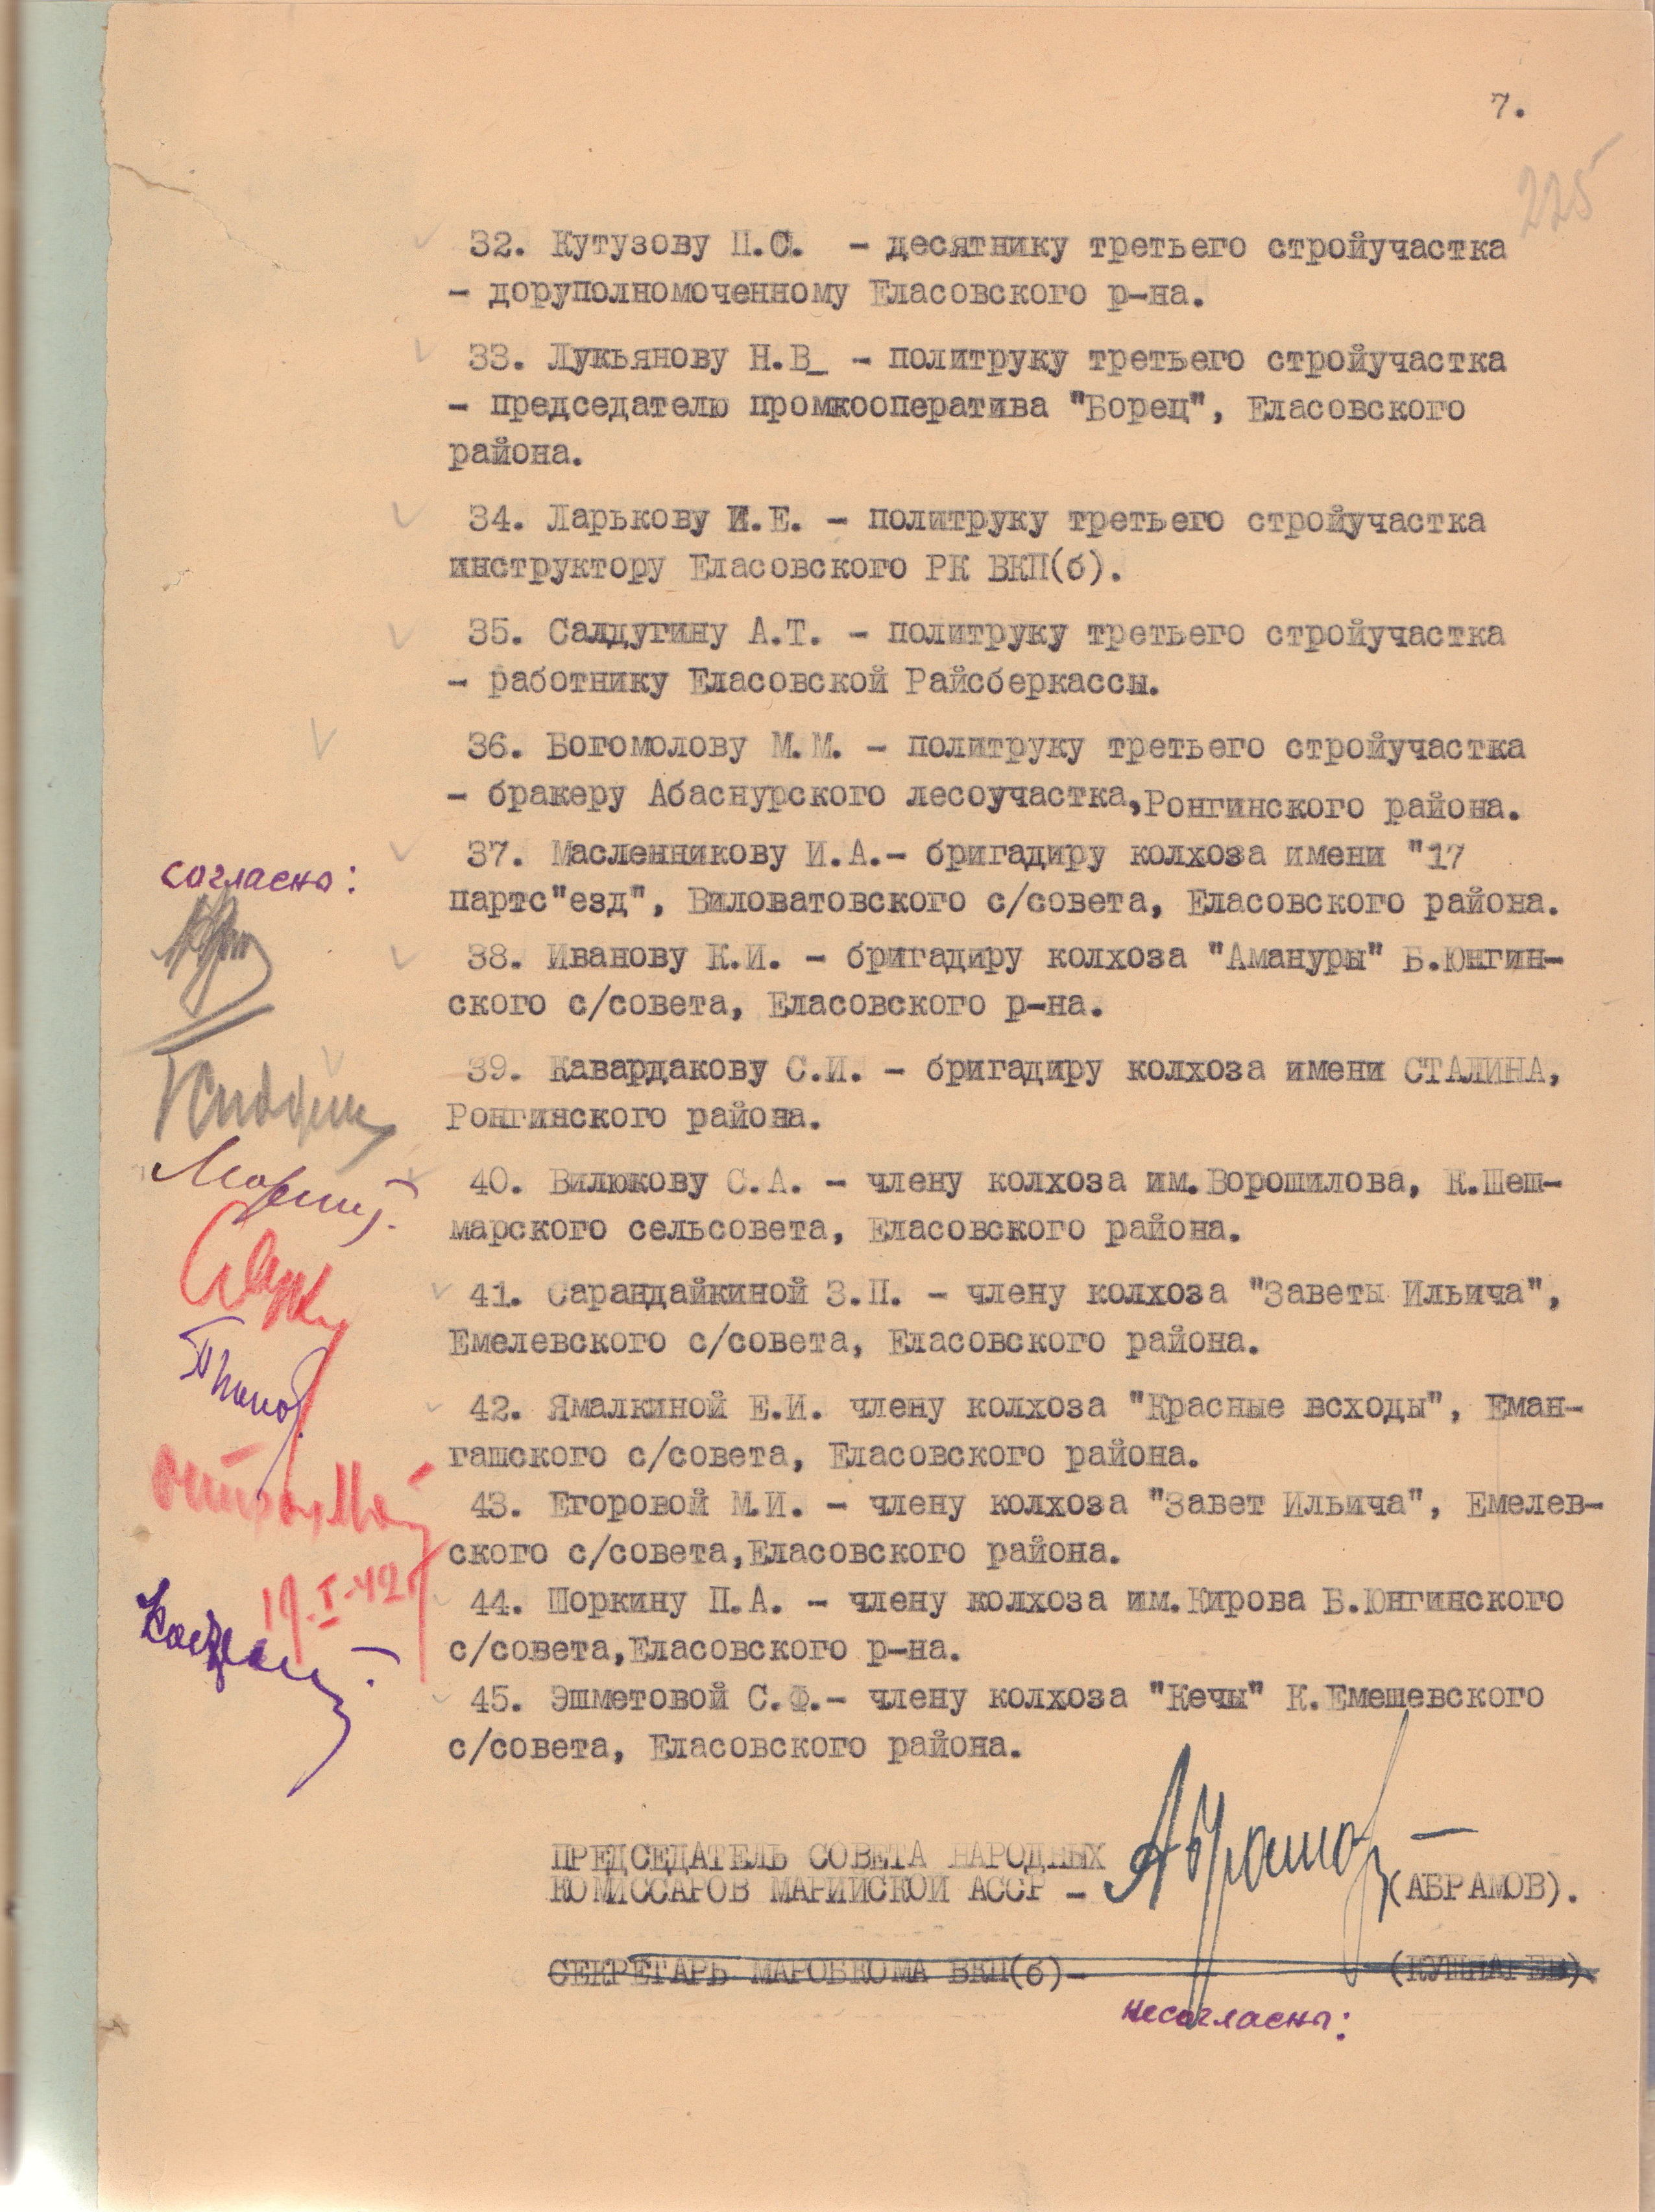 7.
225
32. Кутузову П.С. - десятнику третьего стройучастка
- доруполномоченному Еласовского р-на.
33. Лукьянову Н.В_ - политруку третьего стройучастка
- председателю промкооператива "Борец", Еласовского
района.
34. Ларькову И.Е. - политруку третьего стройучастка
инструктору Еласовского РК ВКП(б).
35. Салдугину А.Т. - политруку третьего стройучастка
- работнику Еласовской Райсберкассы.
36. Богомолову М.М. - политруку третьего стройучастка
- бракеру Абаснурского лесоучастка, Ронгинского района.
37. Масленникову И.А.- бригадиру колхоза имени "17
партс"езд", Виловатовского с/совета, Еласовского района.
38. Иванову К.И. - бригадиру колхоза "Амануры" Б.Юнгин-
ского с/совета, Еласовского р-на.
39. Кавардакову С.И. - бригадиру колхоза имени СТАЛИНА,
Ронгинского района.
40. Вилюкову С.А. - члену колхоза им.Ворошилова, К.Шеш-
марского сельсовета, Еласовского района.
41. Сарандайкиной З.П. - члену колхоза "Заветы Ильича",
Емелевского с/совета, Еласовского района.
42. Ямалкиной Е.И. члену колхоза "Красные всходы", Еман-
гашского с/совета, Еласовского района.
43. Егоровой М.И. - члену колхоза "Завет Ильича", Емелев-
ского с/совета,Еласовского района.
44. Шоркину П.А. - члену колхоза им.Кирова Б.Юнгинского
с/совета,Еласовского р-на.
45. Эшметовой С.Ф.- члену колхоза "Кечы" К.Емешевского
с/совета, Еласовского района.
согласно:
19.I-42
ПРЕДСЕДАТЕЛЬ СОВЕТА НАРОДНЫХ
КОМИССАРОВ МАРИЙСКОЙ АССР - Абрамов (АБРАМОВ).
СЕКРЕТАРЬ МАРОБКОМА ВКП(б)- (КУШНАРЕВ)
несогласны: